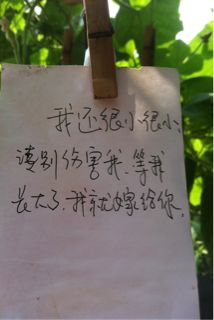 我还很小很小，
请别伤害我．等我
长大了．我就嫁给你．